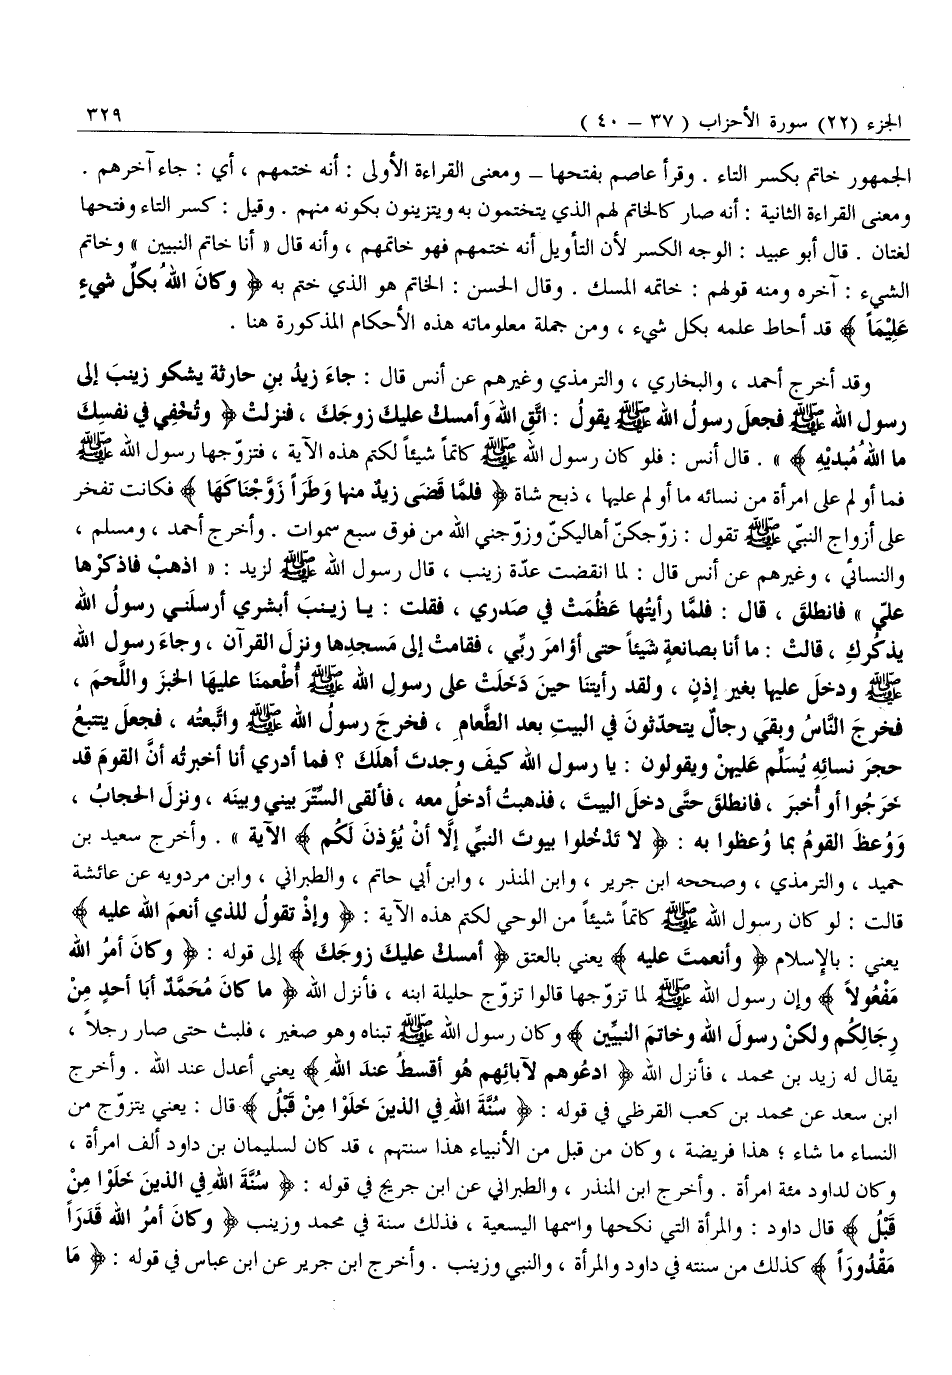 الجزء (٢٢) سورة الأحزاب ( ٣٧ – ٤٠ ) ٣٢٩
الجمهور خاتم بكسر التاء . وقرأ عاصم بفتحها – ومعنى القراءة الأولى : أنه ختمهم ، أي : جاء آخرهم .
ومعنى القراءة الثانية : أنه صار كالخاتم لهم الذي يتختمون به ويتزينون بكونه منهم . وقيل : كسر التاء وفتحها
لغتان . قال أبو عبيد : الوجه الكسر لأن التأويل أنه ختمهم فهو خاتمهم ، وأنه قال « أنا خاتم النبيين » وخاتم
الشيء : آخره ومنه قولهم : خاتمه المسك . وقال الحسن : الخاتم هو الذي ختم به ﴿ وكانَ اللهُ بكلِّ شيءٍ
عَلِيْمَاً ﴾ قد أحاط علمه بكل شيء ، ومن جملة معلوماته هذه الأحكام المذكورة هنا .
وقد أخرج أحمد ، والبخاري ، والترمذي وغيرهم عن أنس قال : جاءَ زيدُ بنِ حارثة يشكو زينبَ إلى
رسول الله ﷺ فجعلَ رسولُ الله ﷺ يقولُ : اتَّقِ اللهَ وأمسكْ عليكَ زوجَكَ ، فنزلتْ ﴿ وتُخْفِي في نفسِكَ
ما اللهُ مُبديْهِ ﴾ » . قال أنس : فلو كان رسول الله ﷺ كاتماً شيئاً لكتم هذه الآية ، فتزوّجها رسول الله ﷺ
فما أو لم على امرأة من نسائه ما أو لم عليها ، ذبح شاة ﴿ فلمَّا قَضَى زيدٌ منها وَطَرَاً زَوَّجْنَاكَهَا ﴾ فكانت تفخر
على أزواج النبيّ ﷺ تقول : زوّجكنّ أهاليكنّ وزوّجني الله من فوق سبع سموات . وأخرج أحمد ، ومسلم ،
والنسائي ، وغيرهم عن أنس قال : لما انقضت عدّة زينب ، قال رسول الله ﷺ لزيد : « اذهبْ فاذكرْها
عليّ » فانطلقَ ، قال : فلمَّا رأيتُها عَظُمَتْ في صَدري ، فقلت : يا زينبَ أبشري أرسلَني رسولُ الله
يذكُركِ ، قالتْ : ما أنا بصانعةٍ شيئاً حتى أؤامرَ ربِّي ، فقامتْ إلى مَسجدِها ونزلَ القرآن ، وجاءَ رسول الله
ﷺ ودخلَ عليها بغير إذنٍ ، ولقد رأيتنا حينَ دَخَلَتْ على رسولِ الله ﷺ أُطْعمنَا عليها الخبزَ واللَّحمَ ،
فخرجَ النَّاسُ وبقيَ رجالٌ يتحدّثونَ في البيتِ بعد الطَّعامِ ، فخرجَ رسولُ الله ﷺ واتَّبعتُه ، فجعلَ يتتبعُ
حجرَ نسائِهِ يُسَلِّم عَليهنْ ويقولون : يا رسول الله كيفَ وجدتَ أهلَك ؟ فما أدري أنا أخبرتُه أنَّ القومَ قد
خَرَجُوا أو أُخبَر ، فانطلقَ حتَّى دخلَ البيتَ ، فذهبتُ أدخلُ معه ، فألقى السِّتْرَ بيني وبينَه ، ونزلَ الحجابُ ،
وَوُعظَ القومُ بما وُعظوا به : ﴿ لا تَدْخُلوا بيوتَ النبيِّ إلَّا أنْ يُؤذنَ لَكُم ﴾ الآية » . وأخرج سعيد بن
حميد ، والترمذي ، وصححه ابن جرير ، وابن المنذر ، وابن أبي حاتم ، والطبراني ، وابن مردويه عن عائشة
قالت : لو كان رسول الله ﷺ كاتماً شيئاً من الوحي لكتم هذه الآية : ﴿ وإذْ تقولُ للذي أنعمَ الله عليه ﴾
يعني : بالإسلام ﴿ وأنعمتَ عليه ﴾ يعني بالعتق ﴿ أمسكْ عليكَ زوجَكَ ﴾ إلى قوله : ﴿ وكانَ أمرُ الله
مَفْعُولاً ﴾ وإن رسول الله ﷺ لما تزوّجها قالوا تزوّج حليلة ابنه ، فأنزل الله ﴿ ما كانَ مُحَمَّدٌ أبَا أحدٍ مِنْ
رِجَالِكُم ولكنْ رسولَ الله وخاتمَ النبيِّين ﴾ وكان رسول الله ﷺ تبناه وهو صغير ، فلبث حتى صار رجلاً ،
يقال له زيد بن محمد ، فأنزل الله ﴿ ادعُوهم لآبائهم هُو أقسطُ عندَ اللهِ ﴾ يعني أعدل عند الله . وأخرج
ابن سعد عن محمد بن كعب القرظي في قوله : ﴿ سُنَّةَ اللهِ في الذينَ خَلَوْا مِنْ قَبْلُ ﴾ قال : يعني يتزوّج من
النساء ما شاء ؛ هذا فريضة ، وكان من قبل من الأنبياء هذا سنتهم ، قد كان لسليمان بن داود ألف امرأة ،
وكان لداود مئة امرأة . وأخرج ابن المنذر ، والطبراني عن ابن جريج في قوله : ﴿ سُنَّةَ اللهِ في الذينَ خَلَوْا مِنْ
قَبْلُ ﴾ قال داود : والمرأة التي نكحها واسمها اليسعية ، فذلك سنة في محمد وزينب ﴿ وكانَ أمرُ الله قَدَرَاً
مَقْدُورَاً ﴾ كذلك من سنته في داود والمرأة ، والنبي وزينب . وأخرج ابن جرير عن ابن عباس في قوله : ﴿ مَا